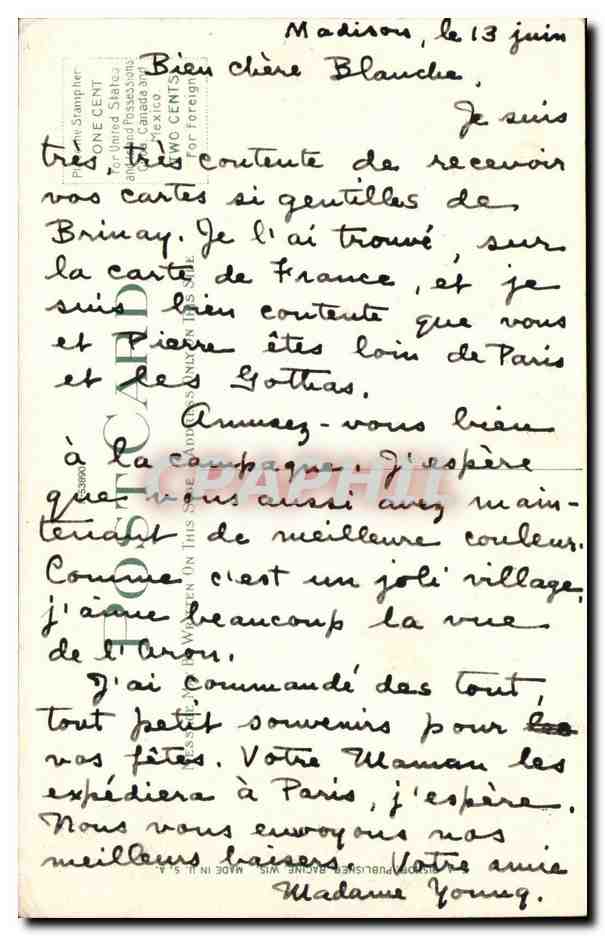 Madison, le 13 juin
Bien chère Blanche,
Je suis
très, très contente de recevoir
vos cartes si gentilles de
Brinay. Je l'ai trouvé, sur
la carte de France, et je
suis bien contente que vous
et Pierre êtes loin de Paris
et les Gothas.
Amusez-vous bien
à la campagne. J'espère
que vous aussi avez main-
tenant de meilleure couleur.
Comme c'est un joli village,
j'aime beaucoup la vue
de l'Aron.
J'ai commandé des tout,
tout petit souvenirs pour
vos fêtes. Votre Maman les
expédiera à Paris, j'espère.
Nous vous envoyons nos
meilleurs baisers. Votre amie
Madame Young.
POST CARD
Place Stamp here
ONE CENT
For United States
and Island Possessions
Cuba, Canada and
Mexico
TWO CENTS
For foreign
MESSAGE MAY BE WRITTEN ON THIS SIDE
ADDRESS ONLY ON THIS SIDE
PUBLISHER, RACINE, WIS. MADE IN U. S. A.
CPAPHIL